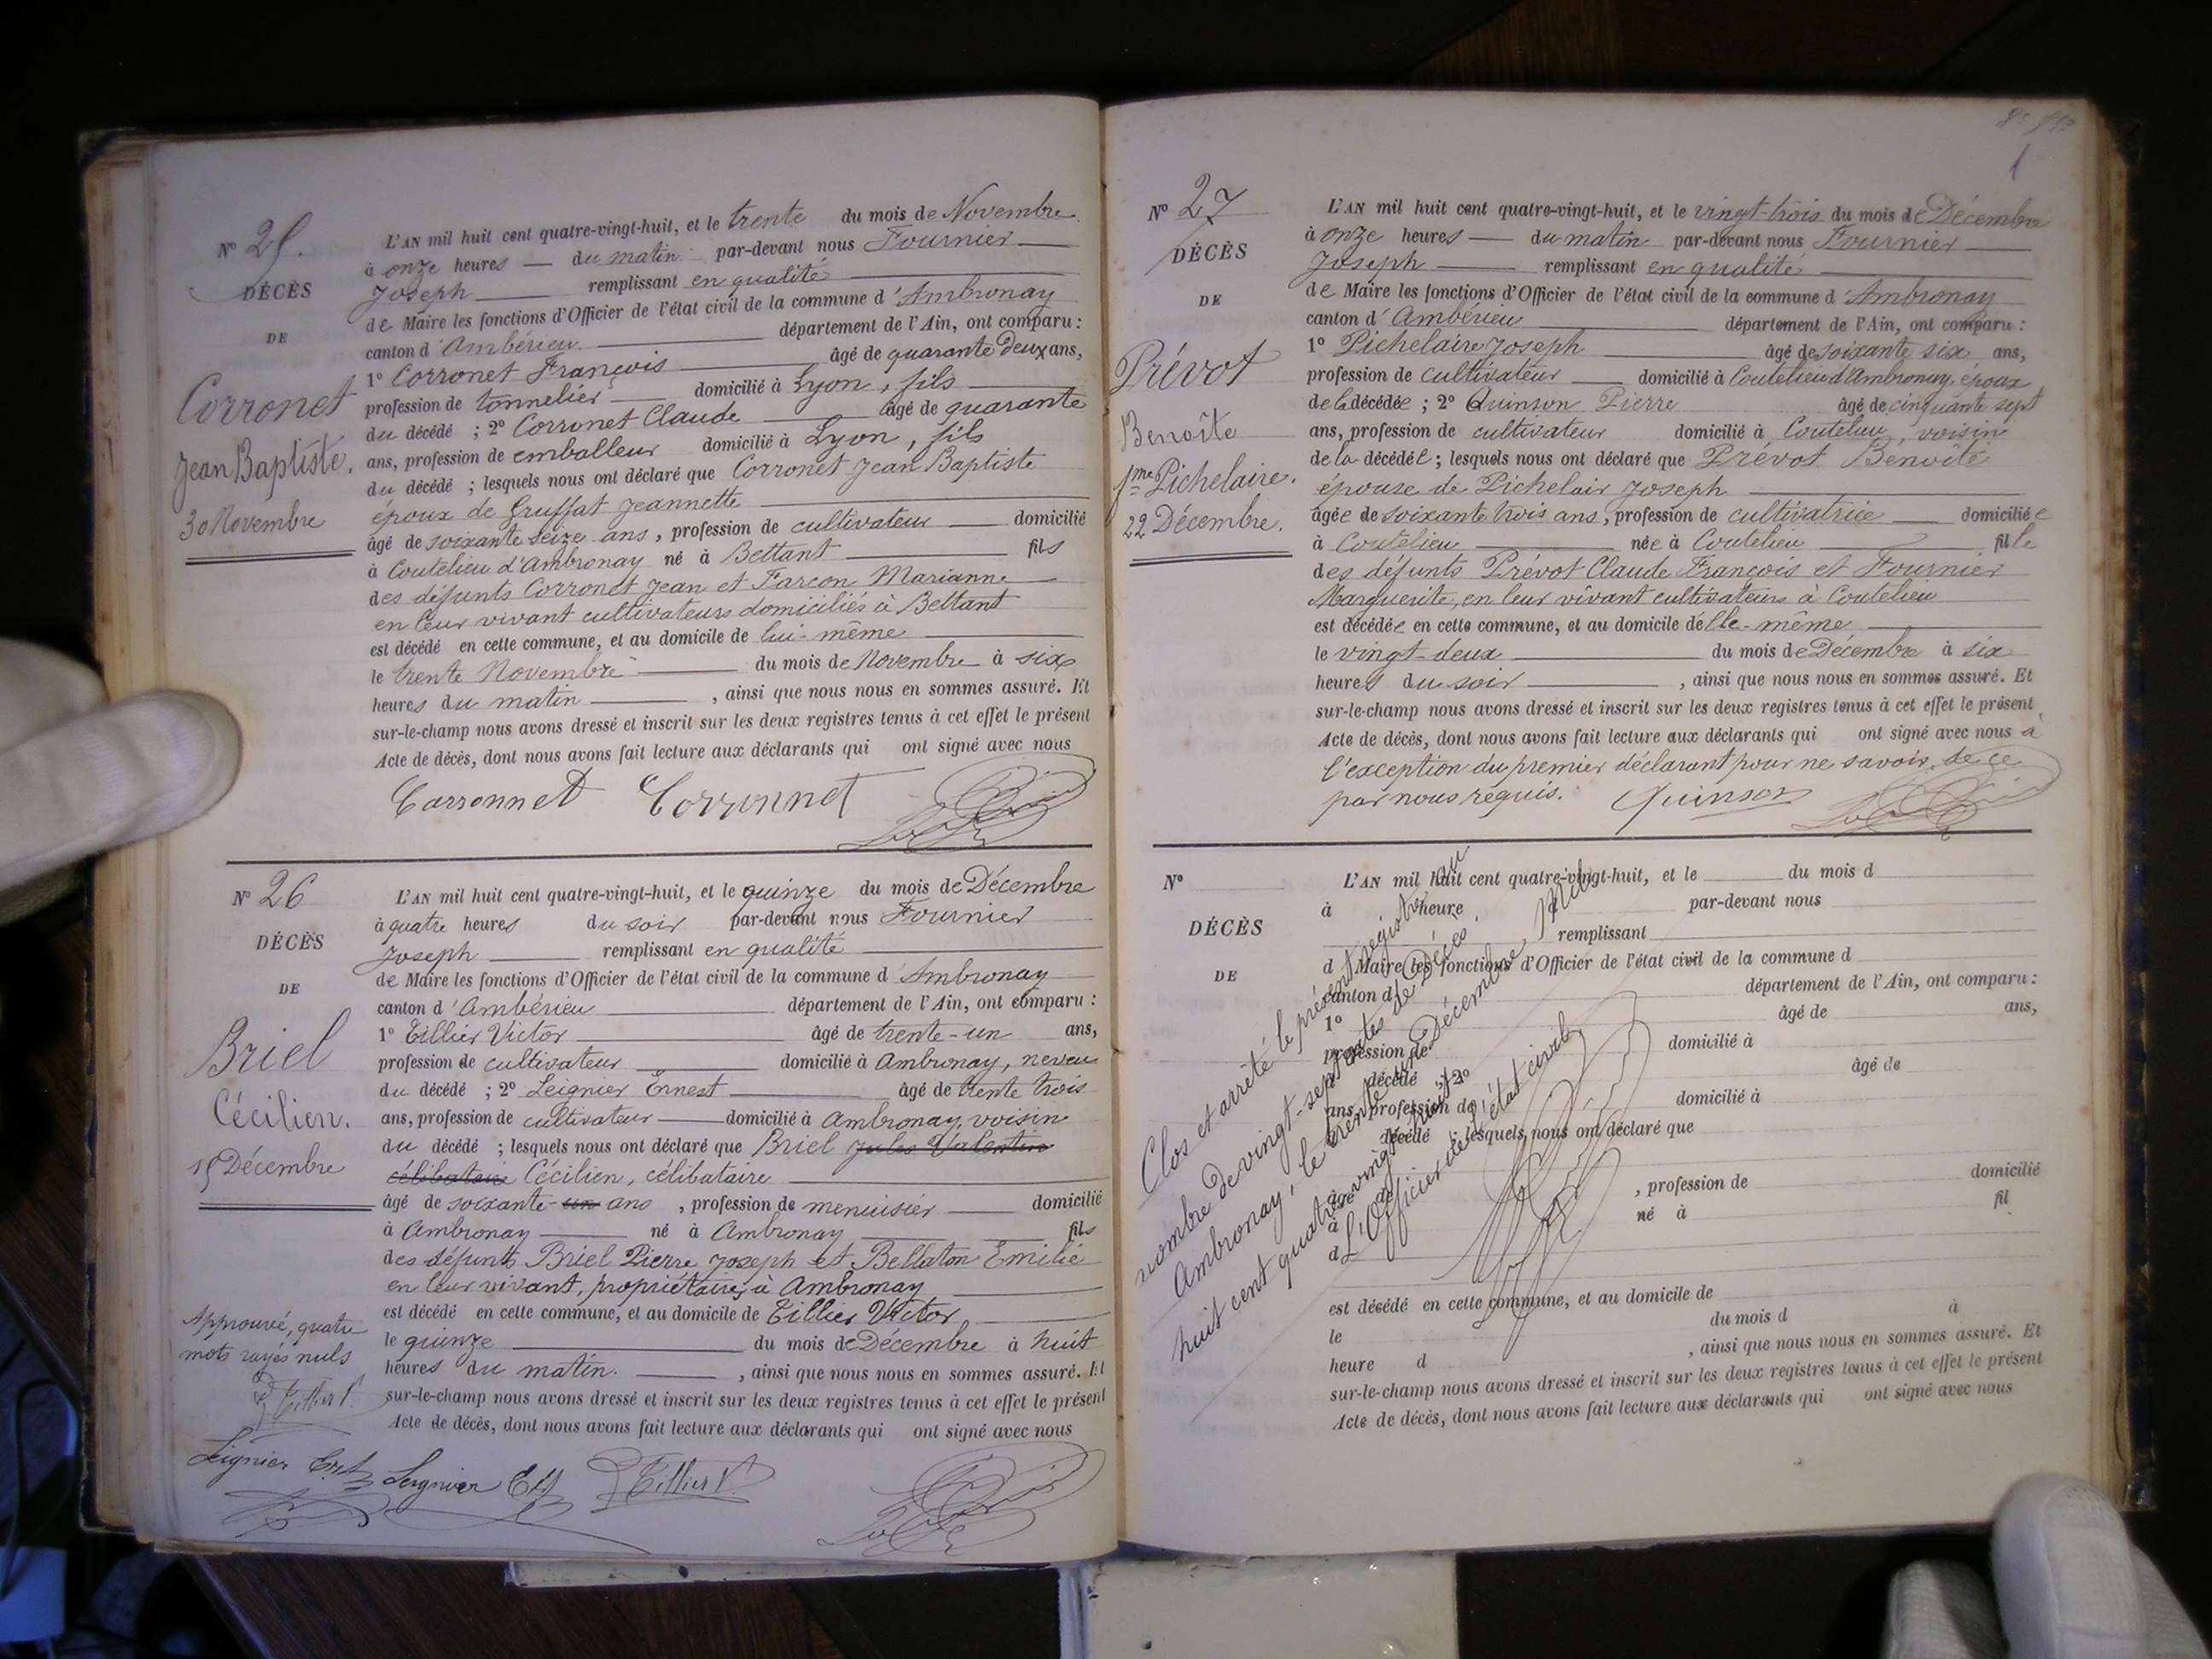 N° 25.
DÉCÈS
DE
Corronet
Jean Baptiste.
30 Novembre
L'AN mil huit cent quatre-vingt-huit, et le trente du mois de Novembre
à onze heures du matin par-devant nous Fournier
Joseph remplissant en qualité
de Maire les fonctions d'Officier de l'état civil de la commune d'Ambronay
canton d'Ambérieu département de l'Ain, ont comparu :
1° Corronet François âgé de quarante deux ans,
profession de tonnelier domicilié à Lyon, fils
du décédé ; 2° Corronet Claude âgé de quarante
ans, profession de emballeur domicilié à Lyon, fils
du décédé ; lesquels nous ont déclaré que Corronet Jean Baptiste
époux de Gruffat Jeannette
âgé de soixante seize ans, profession de cultivateur domicilié
à Coutelieu d'Ambronay né à Bettant fils
des défunts Corronet Jean et Farcon Marianne
en leur vivant cultivateurs domiciliés à Bettant
est décédé en cette commune, et au domicile de lui-même
le trente Novembre du mois de Novembre à six
heures du matin, ainsi que nous nous en sommes assuré. Et
sur-le-champ nous avons dressé et inscrit sur les deux registres tenus à cet effet le présent
Acte de décès, dont nous avons fait lecture aux déclarants qui ont signé avec nous
Corronnet Corronnet
N° 26
DÉCÈS
DE
Briel
Cécilien.
15 Décembre
L'AN mil huit cent quatre-vingt-huit, et le quinze du mois de Décembre
à quatre heures du soir par-devant nous Fournier
Joseph remplissant en qualité
de Maire les fonctions d'Officier de l'état civil de la commune d'Ambronay
canton d'Ambérieu département de l'Ain, ont comparu :
1° Tillier Victor âgé de trente-un ans,
profession de cultivateur domicilié à Ambronay, neveu
du décédé ; 2° Leignier Ernest âgé de trente trois
ans, profession de cultivateur domicilié à Ambronay, voisin
du décédé ; lesquels nous ont déclaré que Briel Jules Valentin
célibataire Cécilien, célibataire
âgé de soixante-un ans, profession de menuisier domicilié
à Ambronay né à Ambronay fils
des défunts Briel Pierre Joseph et Bellaton Emilie
en leur vivant, propriétaires à Ambronay
est décédé en cette commune, et au domicile de Tillier Victor
le quinze du mois de Décembre à huit
heures du matin., ainsi que nous nous en sommes assuré. Et
sur-le-champ nous avons dressé et inscrit sur les deux registres tenus à cet effet le présent
Acte de décès, dont nous avons fait lecture aux déclarants qui ont signé avec nous
Approuvé, quatre
mots rayés nuls
Tillier V.
Leignier Ert Leignier Ert Tillier V.
1
N° 27
DÉCÈS
DE
Prévot
Benoîte
fme Pichelaire.
22 Décembre.
L'AN mil huit cent quatre-vingt-huit, et le vingt-trois du mois de Décembre
à onze heures du matin par-devant nous Fournier
Joseph remplissant en qualité
de Maire les fonctions d'Officier de l'état civil de la commune d'Ambronay
canton d'Ambérieu département de l'Ain, ont comparu :
1° Pichelaire Joseph âgé de soixante six ans,
profession de cultivateur domicilié à Coutelieu d'Ambronay, époux
de la décédée ; 2° Quinson Pierre âgé de cinquante sept
ans, profession de cultivateur domicilié à Coutelieu, voisin
de la décédée ; lesquels nous ont déclaré que Prévot Benoîte
épouse de Pichelair Joseph
âgée de soixante trois ans, profession de cultivatrice domiciliée
à Coutelieu née à Coutelieu fille
des défunts Prévot Claude François et Fournier
Marguerite, en leur vivant cultivateurs à Coutelieu
est décédée en cette commune, et au domicile d'elle-même
le vingt-deux du mois de Décembre à six
heures du soir, ainsi que nous nous en sommes assuré. Et
sur-le-champ nous avons dressé et inscrit sur les deux registres tenus à cet effet le présent
Acte de décès, dont nous avons fait lecture aux déclarants qui ont signé avec nous à
l'exception du premier déclarant pour ne savoir, de ce
par nous requis.
Quinson
N°
DÉCÈS
DE
L'AN mil huit cent quatre-vingt-huit, et le du mois d
à heure d par-devant nous
remplissant
d Maire les fonctions d'Officier de l'état civil de la commune d
canton d département de l'Ain, ont comparu :
1° âgé de ans,
profession de domicilié à
d décédé ; 2° âgé de
ans, profession de domicilié à
d décédé ; lesquels nous ont déclaré que
âgé de , profession de domicilié
à né à fil
d
est décédé en cette commune, et au domicile de
le du mois d à
heure d , ainsi que nous nous en sommes assuré. Et
sur-le-champ nous avons dressé et inscrit sur les deux registres tenus à cet effet le présent
Acte de décès, dont nous avons fait lecture aux déclarants qui ont signé avec nous
Clos et arrêté le présent registre au
nombre de vingt-sept actes de Décès.
Ambronay, le trente un Décembre Mil
huit cent quatre-vingt-huit
L'Officier de l'état civil,